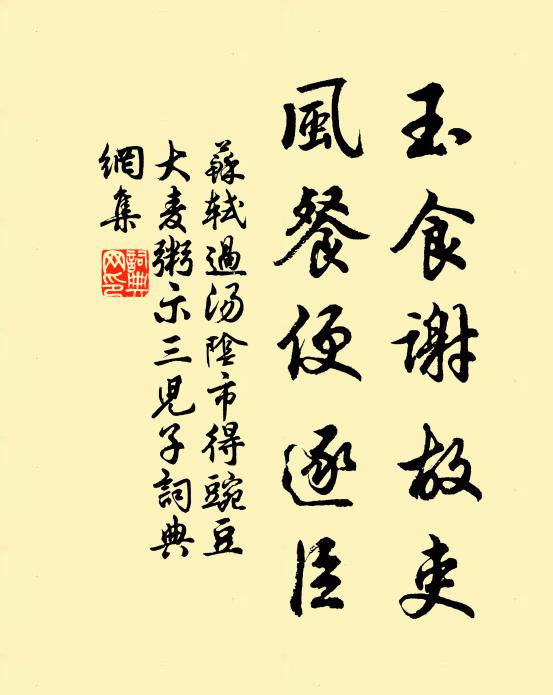 玉食謝故吏
風餐便逐臣
蘇軾過汤陰市得豌豆
大麦粥示三児子詞典
網集
詞典
网印